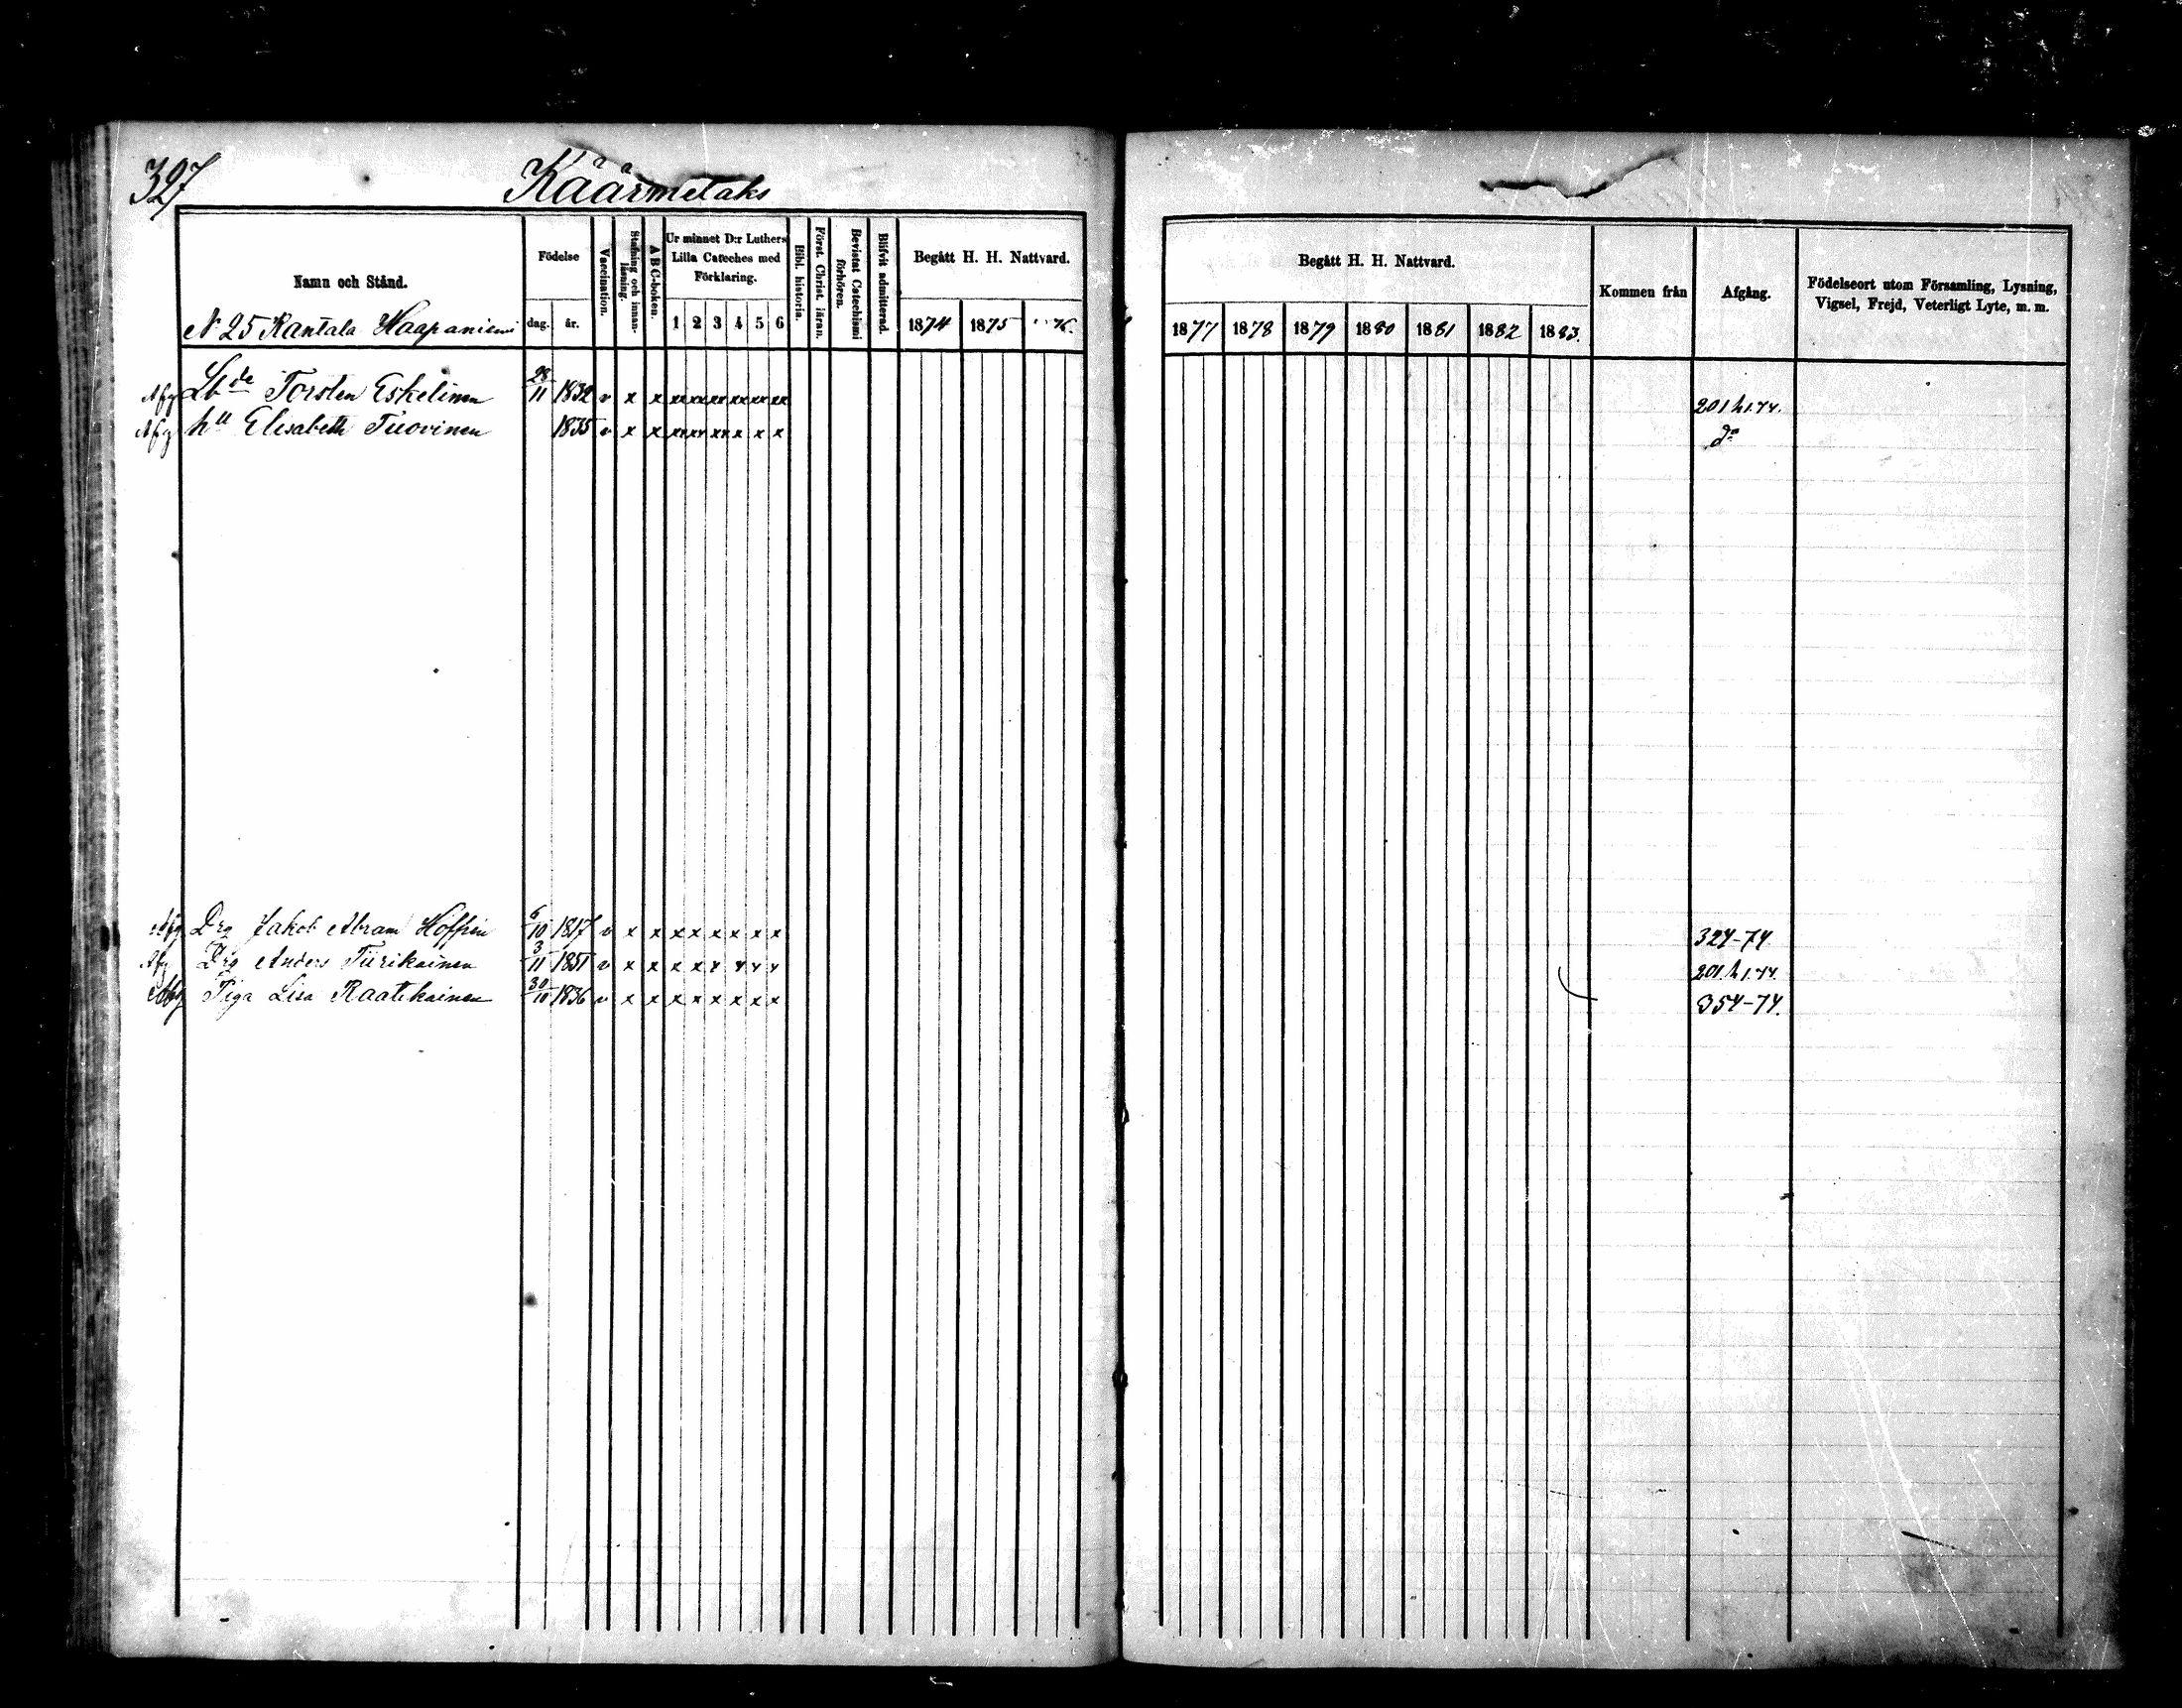 327
Käärmelaks
Namn och Stånd.
Födelse
dag. år.
Vaccination.
Stafning och innanläsning.
A B C-boken.
Ur minnet D:r Luthers Lilla Cateches med Förklaring.
1 2 3 4 5 6
Bibl. historia.
Först. Christ. läran.
Bevistat Catechismi förhören.
Blifvit admitterad.
Begått H. H. Nattvard.
1874 1875 76.
Begått H. H. Nattvard.
1877 1878 1879 1880 1881 1882 1883.
Kommen från
Afgång.
Födelseort utom Församling, Lysning, Vigsel, Frejd, Veterligt Lyte, m. m.
N 25 Rantala Haapaniemi
Afg Lbde Torsten Eskelinen 28/11 1832 v x x xx xx xx xx xx xx 201 h 1. 74.
Afg hu Elisabeth Tuovinen 1835 v x x xx xx xx x x x do
Afg Drg Jakob Abram Hoffrén 6/10 1817 v x x x x x x x x 324-74.
Afg Drg Anders Tiirikainen 3/11 1851 v x x x x x x x x 201 h 1. 74.
Afg Piga Lisa Raatikainen 30/10 1836 v x x x x x x x x 354-74.